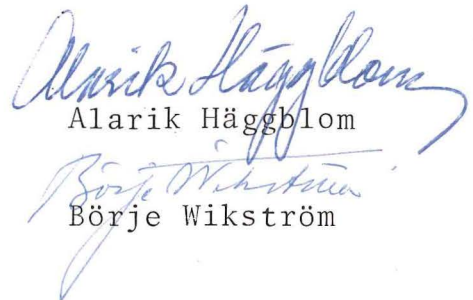 Alarik Häggblom
Alarik Häggblom
Börje Wikström
Börje Wikström